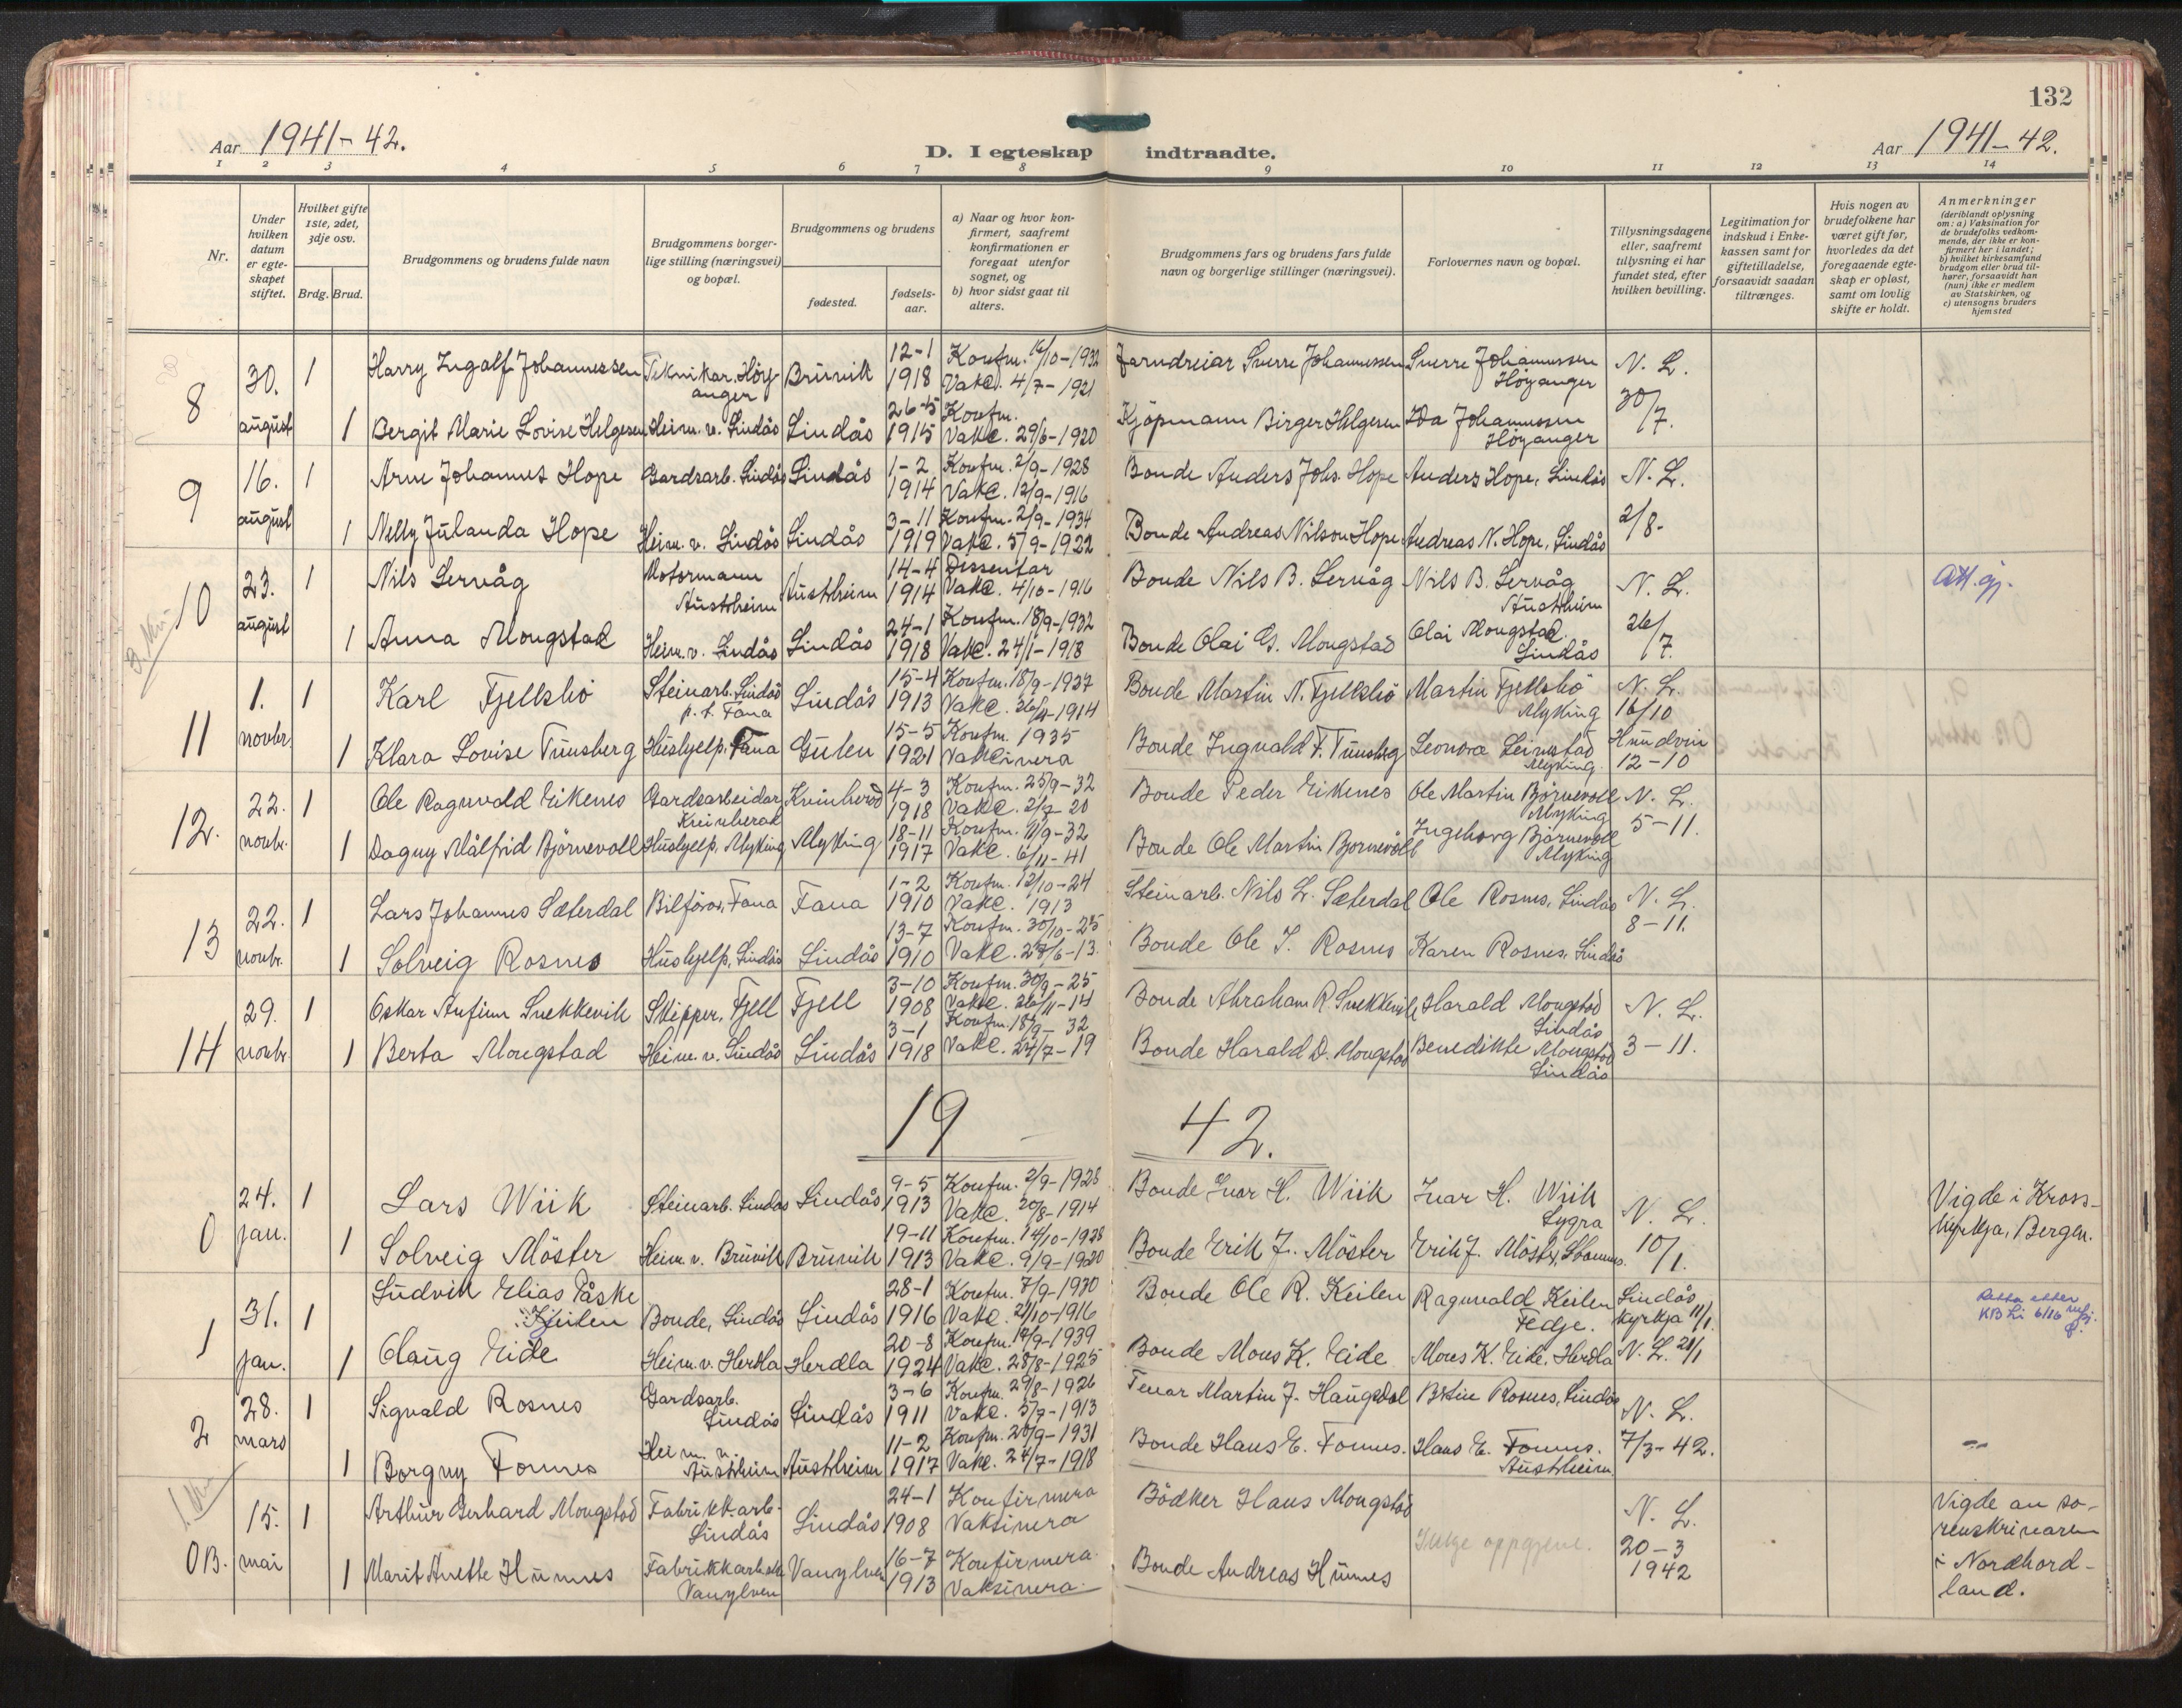 132
Aar 1941-42.
D. I egteskap indtraadte.
Aar 1941-42.
1 2 3 4 5 6 7 8 9 10 11 12 13 14
Nr.
Under hvilken datum er egteskapet stiftet.
Hvilket gifte 1ste, 2det, 3dje osv.
Brdg. Brud.
Brudgommens og brudens fulde navn
Brudgommens borgerlige stilling (næringsvei) og bopæl.
Brudgommens og brudens
fødested.
fødselsaar.
a) Naar og hvor konfirmert, saafremt konfirmationen er foregaat utenfor sognet, og
b) hvor sidst gaat til alters.
Brudgommens fars og brudens fars fulde navn og borgerlige stillinger (næringsvei).
Forlovernes navn og bopæl.
Tillysningsdagene eller, saafremt tillysning ei har fundet sted, efter hvilken bevilling.
Legitimation for indskud i Enkekassen samt for giftetilladelse, forsaavidt saadan tiltrænges.
Hvis nogen av brudefolkene har været gift før, hvorledes da det foregaaende egteskap er opløst, samt om lovlig skifte er holdt.
Anmerkninger
(deriblandt oplysning om: a) Vaksination for de brudefolks vedkommende, der ikke er konfirmert her i landet; b) hvilket kirkesamfund brudgom eller brud tilhører, forsaavidt han (hun) ikke er medlem av Statskirken, og c) utensogns bruders hjemsted
8 30. august 1 Harry Ingolf Johannessen Teknikar, Höyanger Bruvik 12-1 1918 Konfm. 16/10-1932 Vakc. 4/7-1921 Jarndreiar Sverre Johannessen Sverre Johannessen Höyanger N. L.
1 Bergit Marie Lovise Helgesen Heim. v. Lindås Lindås 26-5 1915 Konfm. Vakc. 29/6-1920 Kjöpmann Birger Helgesen Ida Johannessen Höyanger 30/7.
9 16. august 1 Arne Johannes Hope Gardsarb. Lindås Lindås 1-2 1914 Konfm. 2/9-1928 Vakc. 12/9-1916 Bonde Anders Johs. Hope Anders Hope, Lindås N. L.
1 Nelly Julanda Hope Heim. v. Lindås Lindås 3-11 1919 Konfm. 2/9-1934 Vakc. 5/9-1922 Bonde Andreas Nilson Hope Andreas N. Hope, Lindås 2/8-
10 23. august 1 Nils Lervåg Motormann Austrheim Austrheim 14-4 1914 Dissentar Vakc. 4/10-1916 Bonde Nils B. Lervåg Nils B. Lervåg Austrheim N. L. Att. gj.
1 Anna Mongstad Heim. v. Lindås Lindås 24-1 1918 Konfm. 18/9-1932 Vakc. 24/1-1918 Bonde Olai G. Mongstad Olai Mongstad. Lindås 26/7.
11 1. novbr. 1 Karl Fjellsbö Steinarb. Lindås p. t. Fana Lindås 15-4 1913 Konfm. 18/9-1927 Vakc. 26/4-1914 Bonde Martin N. Fjellsbö Martin Fjellsbö Myking N. L. 16/10
1 Klara Lovise Tunsberg Hushjelp, Fana Gulen 15-5 1921 Konfm. 1935 Vakcinera Bonde Ingvald F. Tunsberg Leonora Leirvstad Myking. Hundvin 12-10
12. 22. novbr. 1 Ole Ragnvald Eikenes Gardsarbeidar Kvinherad Kvinherod 4-3 1918 Konfm. 25/9-32 Vakc. 2/7-20 Bonde Peder Eikenes Ole Martin Björnevoll Myking N. L.
1 Dagny Målfrid Björnevoll Hushjelp, Myking Myking 18-11 1917 Konfm. 11/9-32 Vakc. 6/11-41 Bonde Ole Martin Björnevoll Ingeborg Björnevoll Myking 5-11.
13 22. novbr. 1 Lars Johannes Sæterdal Bilförar, Fana Fana 1-2 1910 Konfm. 12/10-24 Vakc. 1913 Steinarb. Nils L. Sæterdal Ole Rosnes, Lindås N. L. 8-11.
1 Solveig Rosnes Hushjelp, Lindås Lindås 13-7 1910 Konfm. 30/10-25 Vakc. 28/6-13. Bonde Ole I. Rosnes Karen Rosnes, Lindås
14 29. novbr. 1 Oskar Anfinn Snekkevik Skipper, Fjell Fjell 3-10 1908 Konfm. 30/9-25 Vakc. 26/11-14 Bonde Abraham R. Snekkevik Harald Mongstad Lindås N. L.
1 Berta Mongstad Heim. v. Lindås Lindås 3-1 1918 Konfm. 18/9-32 Vakc. 24/7-19 Bonde Harald D. Mongstad Benedikte Mongstad Lindås 3-11.
19 42.
0 24. jan. 1 Lars Wiik Steinarb. Lindås Lindås 9-5 1913 Konfm. 2/9-1928 Vakc. 20/8-1914 Bonde Ivar H. Wiik Ivar H. Wiik Lygra N. L. Vigde i Krosskyrkja, Bergen.
1 Solveig Möster Heim. v. Bruvik Bruvik 19-11 1913 Konfm. 14/10-1928 Vakc. 9/9-1920 Bonde Erik J. Möster Erik J. Möster, 10/1.
1 31. jan. 1 Ludvik Elias Påske Keilen Bonde, Lindås Lindås 28-1 1916 Konfm. 7/9-1930 Vakc. 21/10-1916 Bonde Ole R. Keilen Ragnvald Keilen Fedje. Lindås kyrkja 11/1. Retta etter KB Li 6/16
1 Olaug Eide Heim. v. Herdla Herdla 20-8 1924 Konfm. 17/9-1939 Vakc. 28/8-1925 Bonde Mons K. Eide Mons K. Eide, Herdla N. L. 21/1
2 28. mars 1 Sigvald Rosnes Gardsarb. Lindås Lindås 3-6 1911 Konfm. 29/8-1926 Vakc. 5/7-1913 Martin J. Haugsdal Rosnes, Lindås N. L.
1 Borgny Fonnes Heim. v. Austrheim Austrheim 11-2 1917 Konfm. 20/9-1931 Vakc. 24/7-1918 Bonde Hans E. Fonnes. Hans E. Fonnes. Austrheim. 7/3-42.
0B. 15. mai 1 Arthur Gerhard Mongstad Fabrikkarb. Lindås Lindås 24-1 1908 Konfirmera Vaksinera Bödker Hans Mongstad Ikkje oppgjeve. N. L. 20-3 1942 Vigde av sorenskrivaren i Nordhordland.
1 Marit Anette Hunnes Fabrikkarbeidar Vanylven Vanylven 16-7 1913 Konfirmera. Vaksinera. Bonde Andreas Hunnes